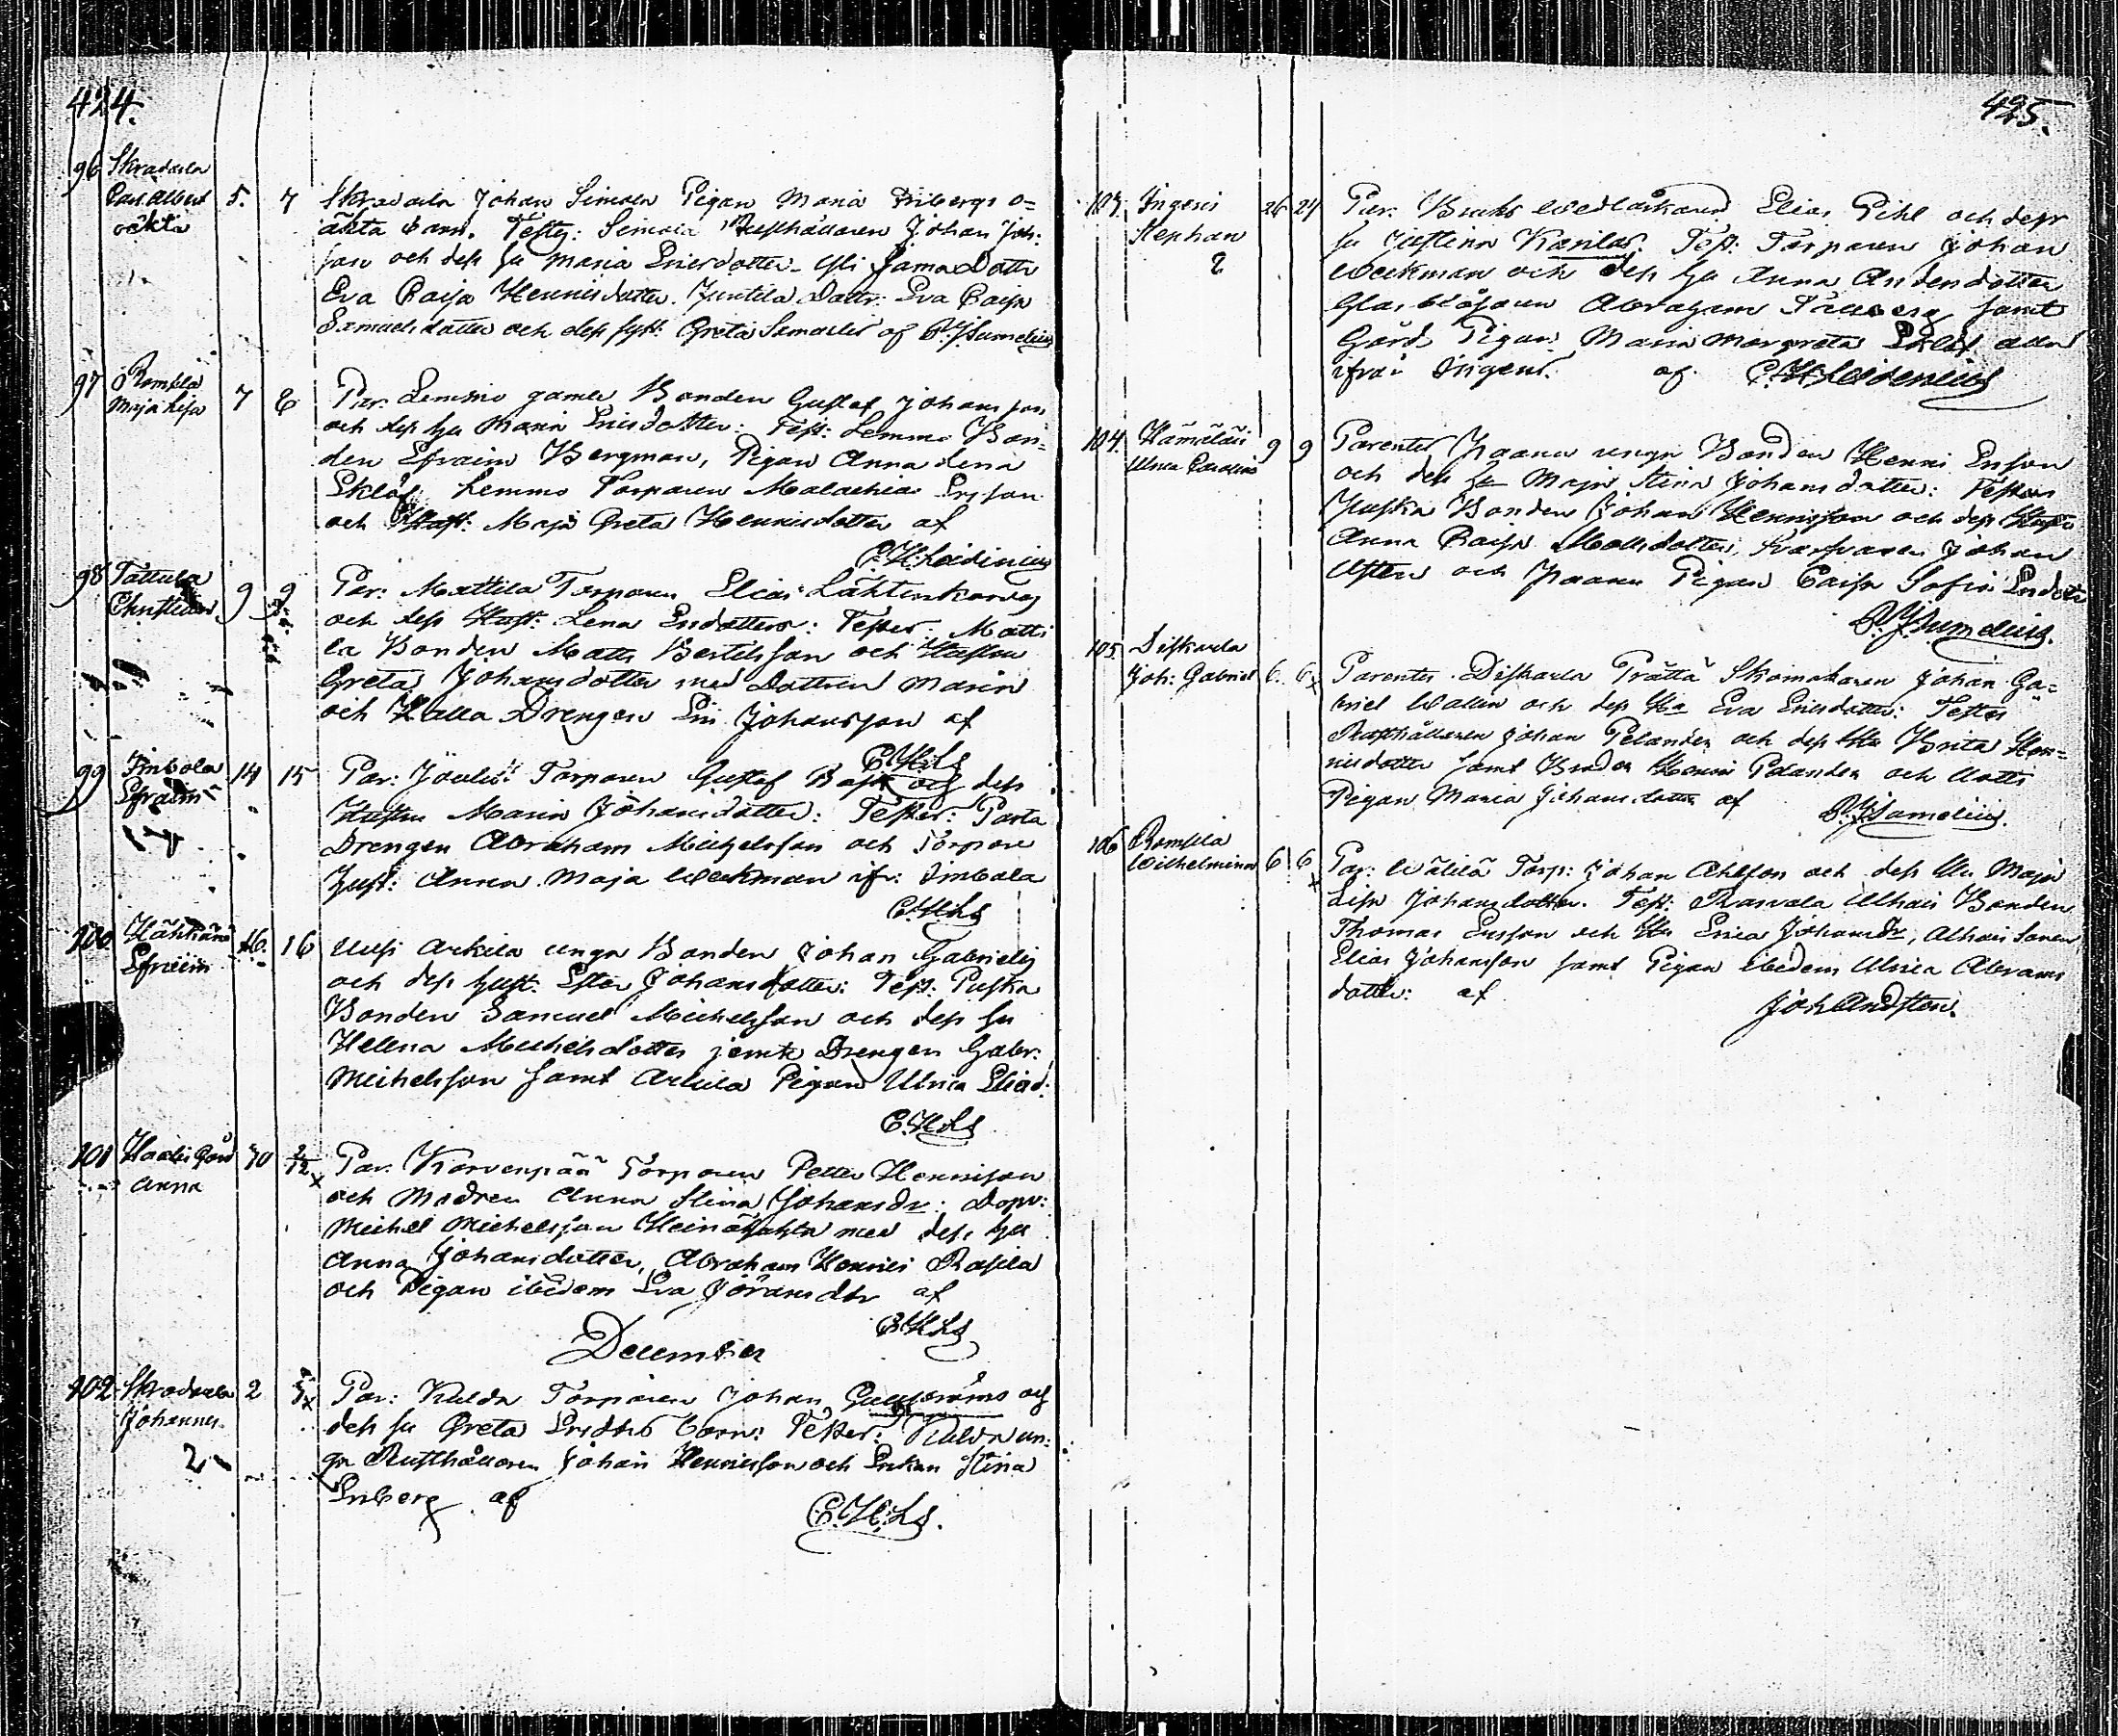 424.
96 Skradarla
Carl Albert 5. 7 Skradarla Johan Simola Pigan Maria Fribergs o=
oäkta äkta barn. Test: Simola Rusthållaren Johan Joh:
son och dess hu Maria Ericsdotter. Dottr
Eva Caisa Henricsdotter. Juntila Dottr: Eva Caisa
Samuelsdotter och dess syst: Greta Samuelsd af
97 Rompila
Maja Lisa 7 8 Par: Lemmo gamle Bonden Gustaf Johansson
och dess hu Maria Ericsdotter: Test: Lemmo Bon=
den Efraim Bergman, Pigan Anna Lena
Eklöf, Lemmo Torparen Malachias Ersson
och Hust: Maja Greta Henricsdotter af
C. H. Leidenius
98 Tattula
Christian 9 9 Par: Mattila Torparen Elias Lähtenkorva
och dess Hust: Lena Ersdotter: Tester: Matti
la Bonden Matts Bertelsson och Hustrun
Greta Johansdotter med Dottren Maria
och Kalla Drengen Eric Johansson af
C.H.Ls
99 Imbola
Efraim 14 15 Par: Torparen Gustaf och dess
Hustru Maria Johansdotter: Tester: Parta
Drengen Abraham Michelsson och Torpare
Hust: Anna Maja Weckman ifr: Imbola
C.H.Ls
100 Hähkänä
Efraim 16. 16 Uusi Arkila unga Bonden Johan Gabrielss
och dess hust: Ester Johansdotter: Test: Puska
Bonden Samuel Michelsson och dess hu
Helena Michelsdotter jemte Drengen Gabr:
Michelsson samt Arkila Pigan Ulrica Eliasd:
C.H.Ls
101 Gård 30 2/12 x
Anna Par: Korvenpää Torparen Petter Henricsson
och Modren Anna Stina Johansdr: Dopv:
Michel Michelsson med dess hu
Anna Johansdotter, Abraham Henrics Rasila
och Pigan ibidem Eva Göransdtr af
C.H.Ls
December
102 Skradarla 2 x Par: Kulda Torparen Johan och
Johannes dess hu Greta Ersdtrs barn: Tester: Kulda un=
2 ga Rusthållaren Johan Henricsson och Enkan Stina
Enberg af C.H.Ls.
425.
103. Ingeris 26 27 Par: Bruks Elias Pihl och dess
Stephan hu Justina Karilas. Test: Torparen Johan
2 Weckman och dess hu Anna Andersdotter
Glasblåsaren Abraham samt
Gårds Pigan: Maria Margreta Eklöf alla
ifrån Ingeris. af C. H. Leidenius
104. Hämeläis
Ulrica Carolina 9 9 Parenter Haanu unga Bonden Henric Ersson
och dess hu Maja Stina Johansdotter: Tester
Puska Bonden Johan Henricsson och dess Hustru
Anna Caisa Mattsdotter, Johan
Ulsten och Haanu Pigan Caisa Sofia Ersdotr
105. Diskarla
Joh: Gabriel 6. 6 x Parenter Diskarla Prättä Skomakaren Johan Ga=
briel Wallin och dess Hu Eva Ericsdotter: Tester
Rusthållaren Johan Pelander och dess Hu Brita Hen=
ricsdotter samt Broder Henric Pelander och Uotts
Pigan Maria Johansdotter af
106 Rompila
Wilhelmina 6 6 x Par: Wälilä Torp: Johan Ahlfors och dess Hu Maja
Lisa Johansdotter. Test: Rasvala Alhais Bonden
Thomas Ersson och Hu Erica Johansdr, Alhais Sonen
Elias Johansson samt Pigan ibidem Ulrica Abrams
dotter: af
Joh Andsten.